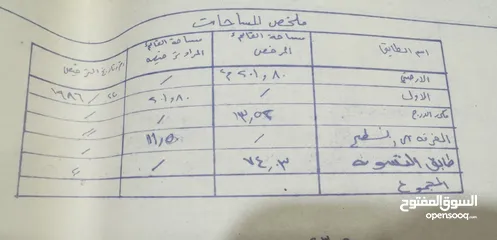 ملخص المساحات
اسم الطابق | مساحة القائم المرخص | مساحة القائم المراد ترخيصه | رقم وتاريخ الترخيص
الارضي | ٢٠١,٨٠ م٢ | /
الاول | / | ٢٠١,٨٠ | ١٩٨٦ /
الدرج | ١٣,٥٢ | / | //
السطح | / | //
طابق التسوية | ٧٤,٣ | /
المجموع
السوق المفتوح
opensooq.com